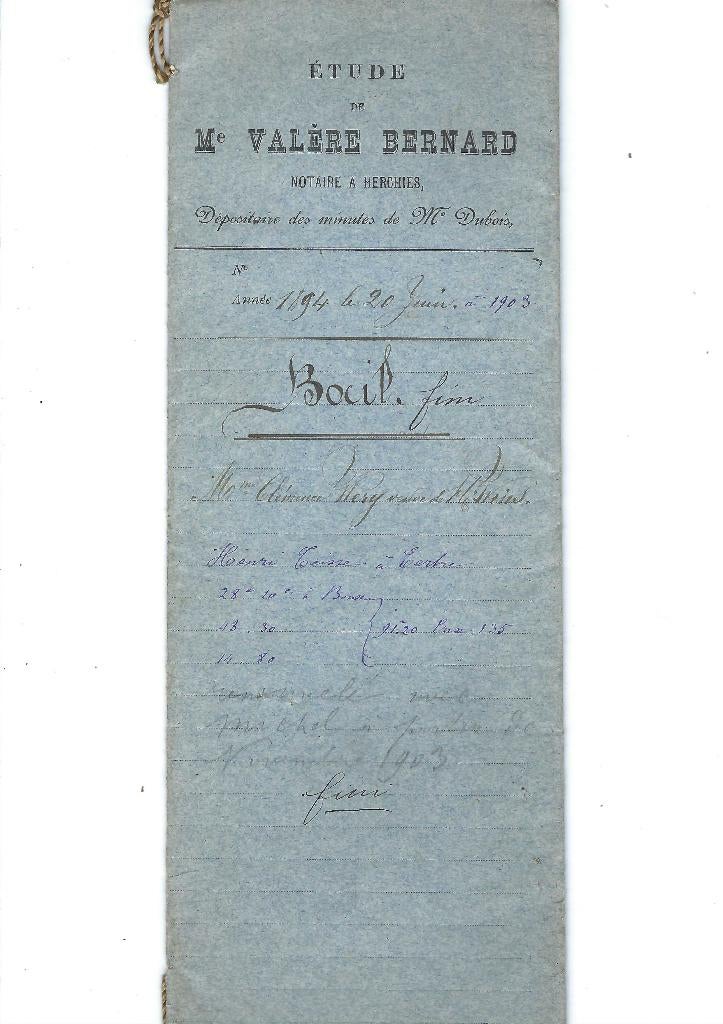 ÉTUDE
DE
Me VALÈRE BERNARD
NOTAIRE A HERCHIES,
Dépositaire des minutes de Me Dubois,
No
Année 1894 le 20 Juin. à 1903
Bail. fini
Mme Clémence Wery veuve de
Henri à Tertre
28a 20c à
43 30
14 80
renouvelé avec
Michel à partir de
Novembre 1903
fini